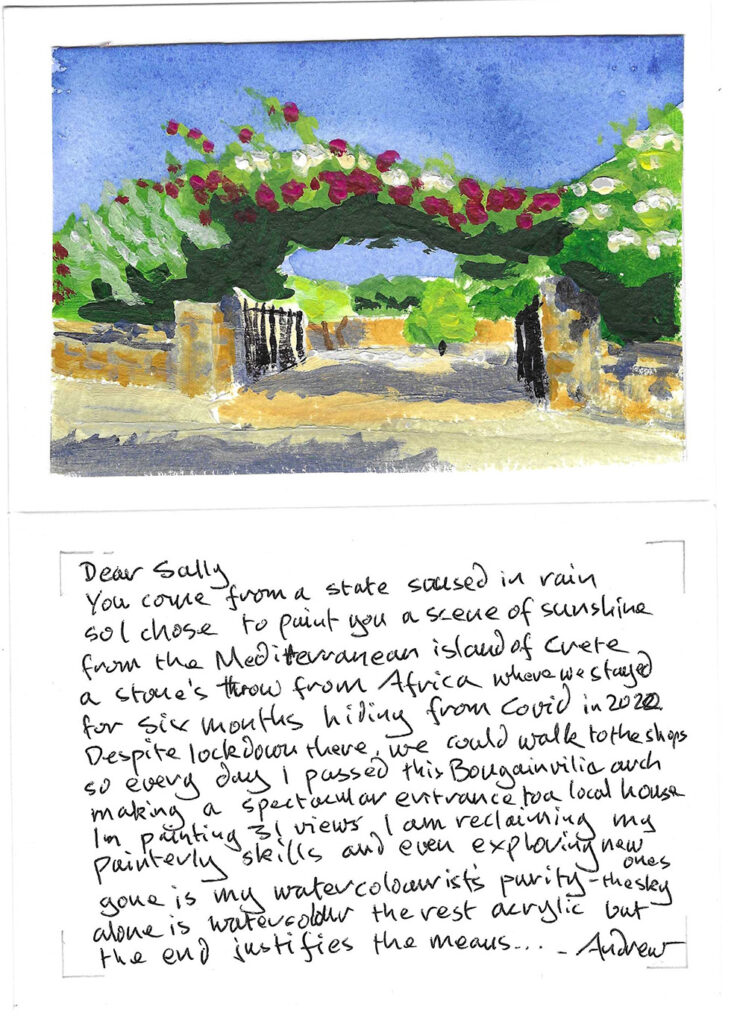 Dear Sally
You come from a state soused in rain
so I chose to paint you a scene of sunshine
from the Mediterranean island of Crete
a stone's throw from Africa where we stayed
for six months hiding from Covid in 2022.
Despite lockdown there, we could walk to the shops
so every day I passed this Bougainvilia arch
making a spectacular entrance to a local house
In painting 31 views I am reclaiming my
painterly skills and even exploring new ones
gone is my watercolourist's purity - the sky
alone is watercolour the rest acrylic but
the end justifies the means... - Andrew